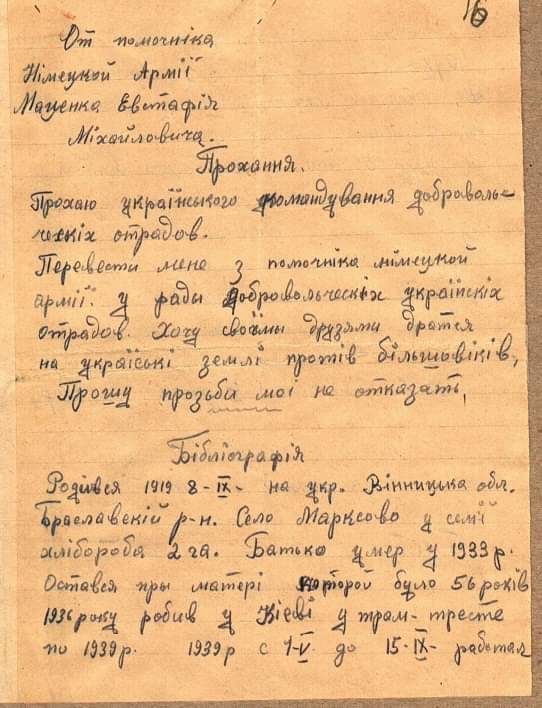 16
От помочніка
Німецкой Армії
Маценка Евстафія
Міхайловича.
Прохання.
Прохаю українського командування доброволь-
ческіх отрадов.
Перевести мене з помочніка німецкой
армії. у ряды добровольческіх украінскіх
отрадов. Хочу своїмы друзями братся
на украіські землі протів більшовіків,
Прошу прозьби моі не отказать,
Бібліографія
Родівся 1919 8-IX- на укр. Вінницька обл.
Браславскій р-н. Село Марксово у семїі
хлібороба 2 га. Батько умер у 1933 р.
Остався пры матері которой було 56 років
1936 року робив у Кіеві у трам-тресте
по 1939 р. 1939 р с 1-V до 15-IX- работал